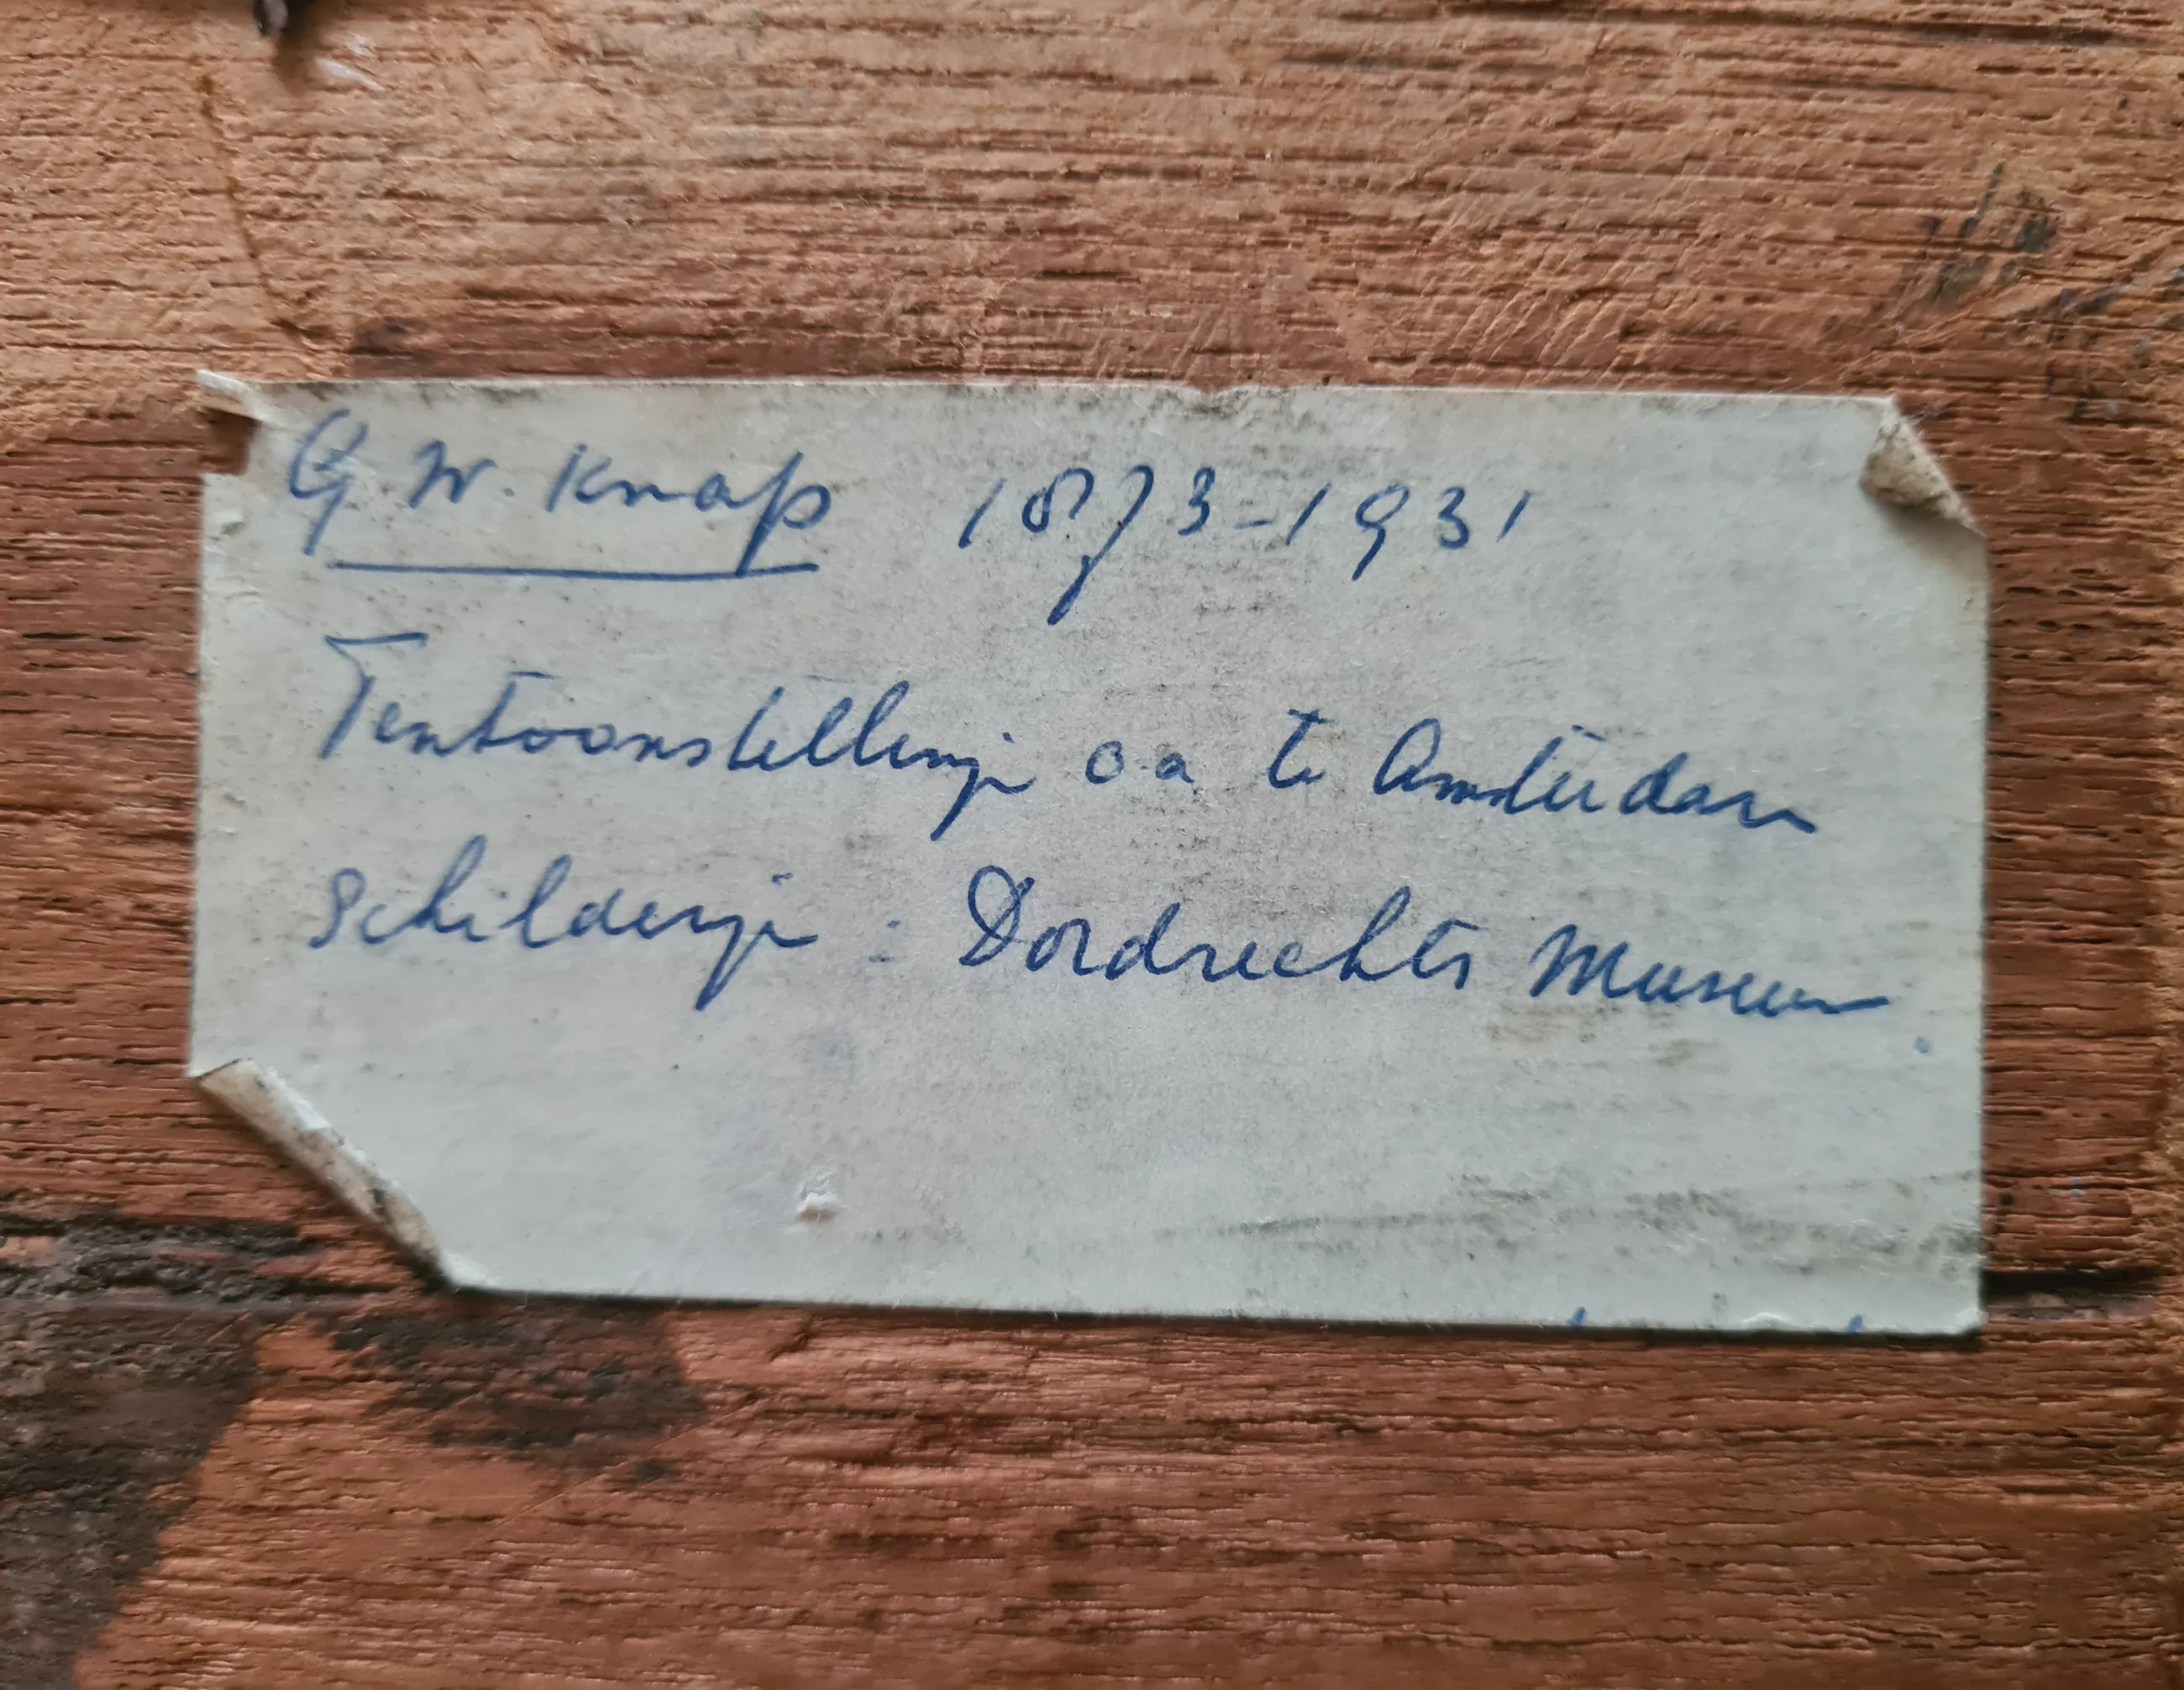 G W. Knap 1873-1931
Tentoonstellinge o.a te Amsterdam
Schilderije : Dordrechts Museum.